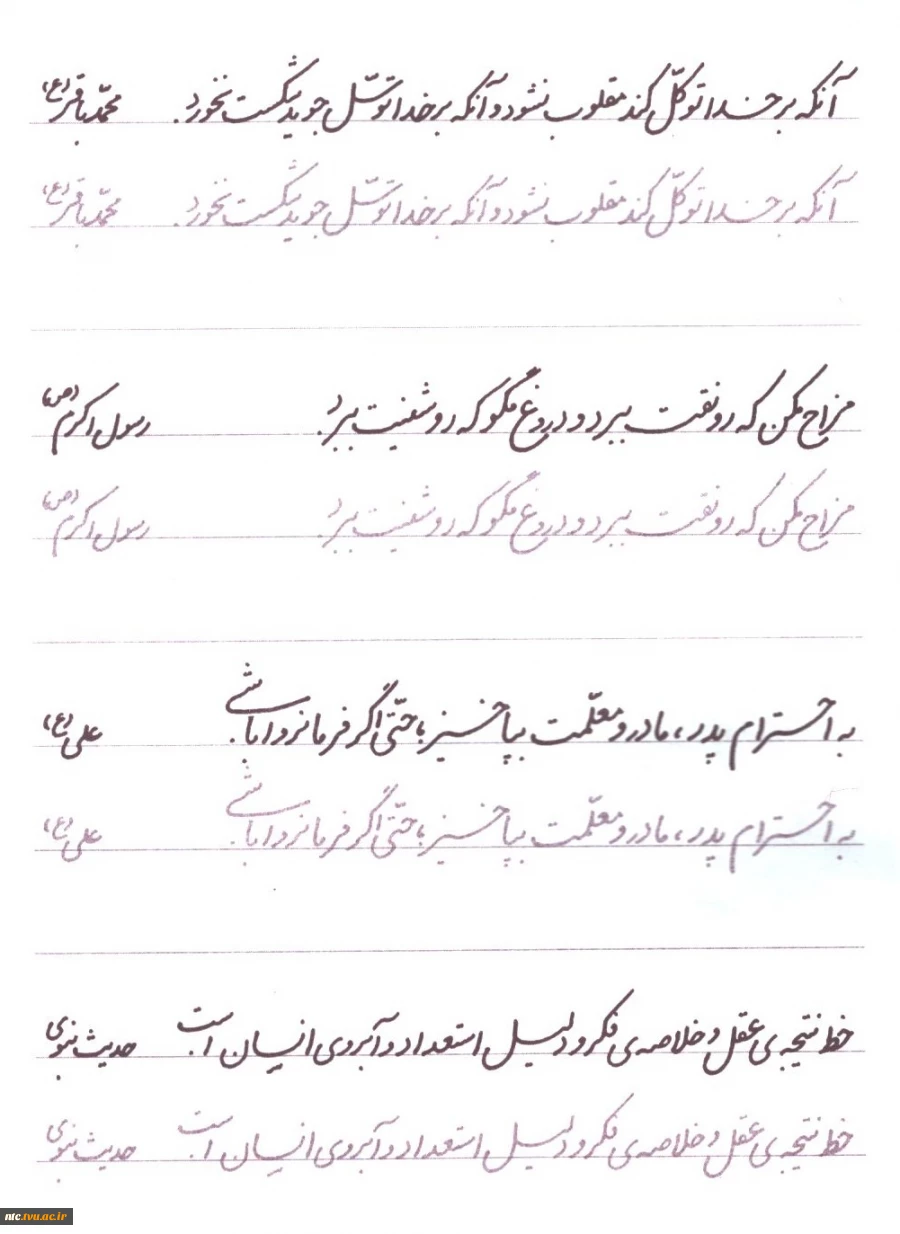 آنکه بر خدا توکّل کند مغلوب نشود و آنکه بر خدا توسّل جوید شکست نخورد. محمّد باقر (ع)
آنکه بر خدا توکّل کند مغلوب نشود و آنکه بر خدا توسّل جوید شکست نخورد. محمّد باقر (ع)
مزاح مکن که رونقت ببرد و دروغ مگو که روشنیت ببرد. رسول اکرم (ص)
مزاح مکن که رونقت ببرد و دروغ مگو که روشنیت ببرد. رسول اکرم (ص)
به احترام پدر، مادر و معلّمت بپا خیز؛ حتّی اگر فرمانروا باشی. علی (ع)
به احترام پدر، مادر و معلّمت بپا خیز؛ حتّی اگر فرمانروا باشی. علی (ع)
خط نتیجه ی عقل و خلاصه ی فکر و دلیل استعداد و آبروی انسان است. حدیث نبوی
خط نتیجه ی عقل و خلاصه ی فکر و دلیل استعداد و آبروی انسان است. حدیث نبوی
ntc.tvu.ac.ir